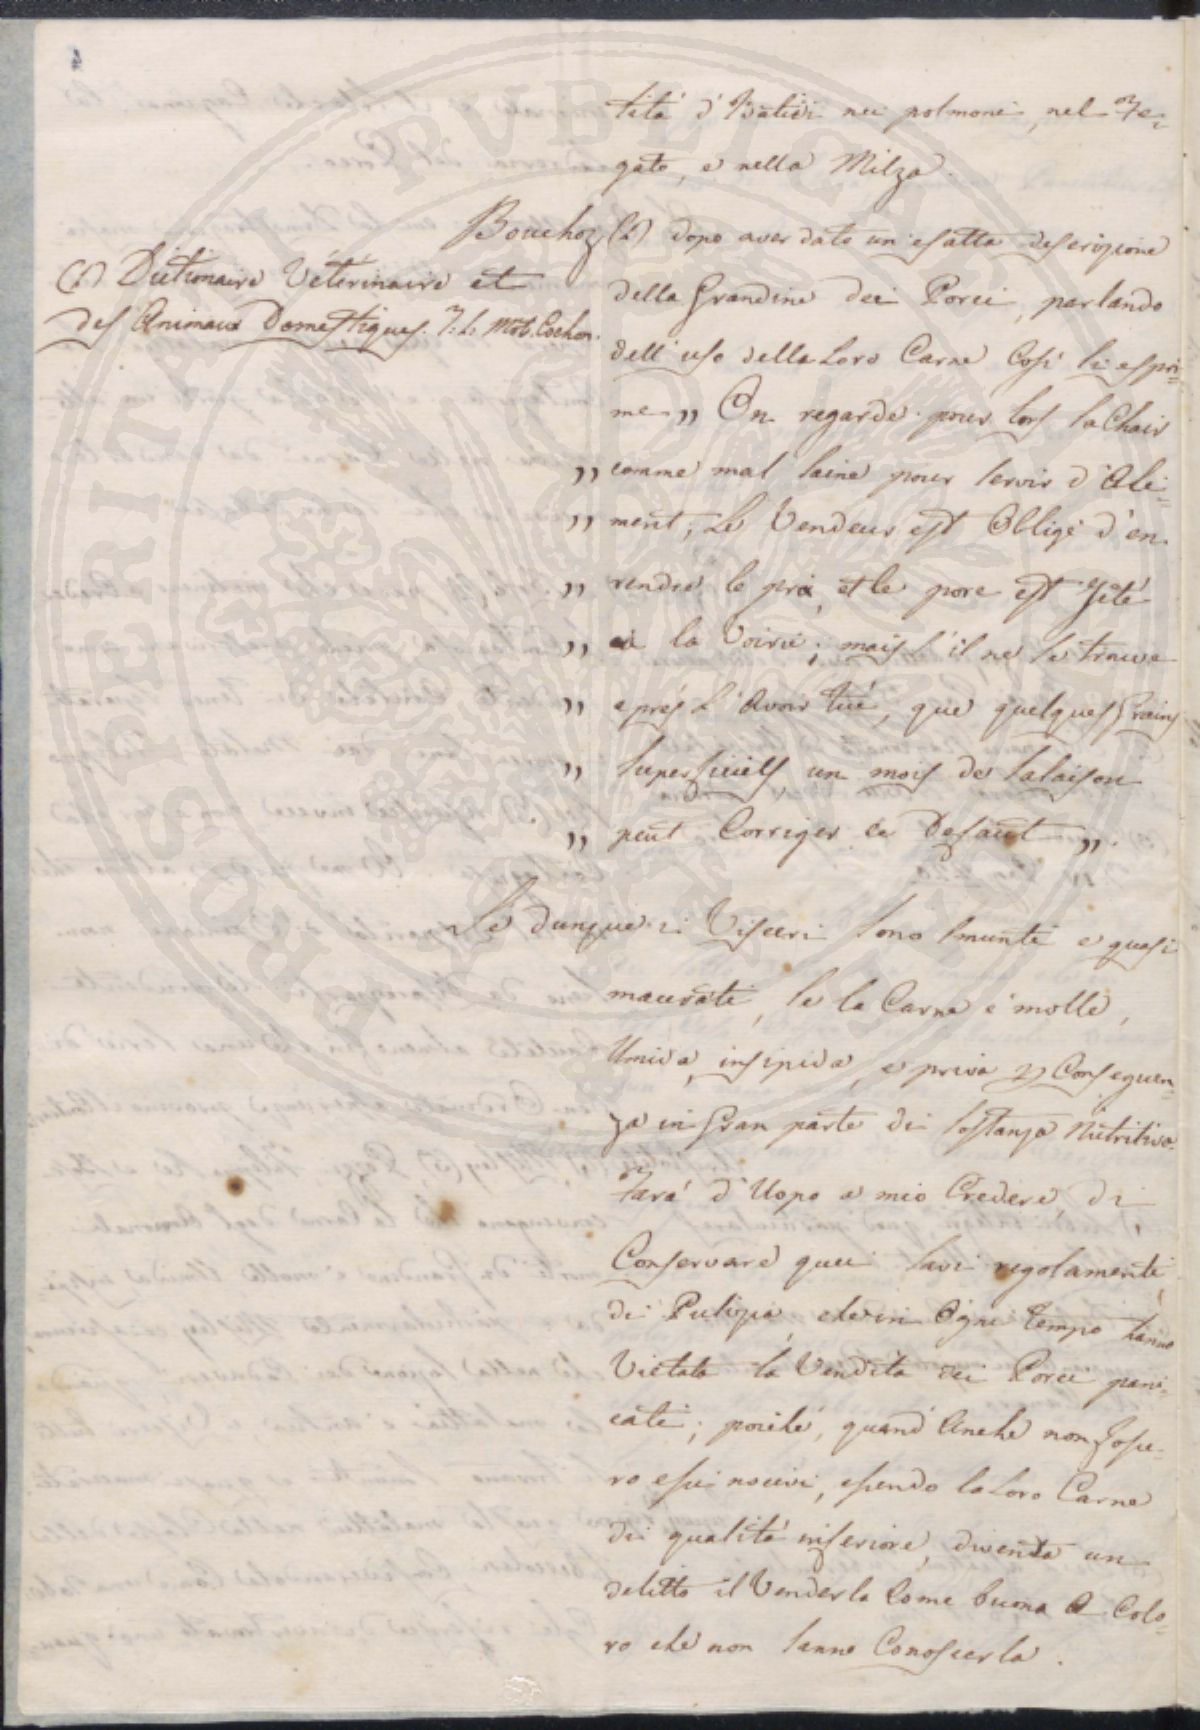 4
tità d'Idatidi nei polmoni, nel Fe-
gato, e nella Milza.
Bouchoz (1) dopo aver dato un'esatta descrizione
della Grandine dei Porci, parlando
dell'uso della Loro Carne Così si espri=
me „ On regarde pour lors la Chair
„ comme mal saine pour servir d'Ali=
„ ment; Le Vendeur est Obligé d'en
„ rendre le prix, et le porc est Jété
„ a la Voirie; mais s'il ne se trouve
„ après L'Avoir tué, que quelques Grains
„ superficiels, un mois de salaison
„ peut Corriger ce Defaut „.
Se dunque i Visceri sono smunti e quasi
macerati, se la Carne è molle,
Umida, insipida, e priva p Conseguen=
za in Gran parte di sostanza Nutritiva.
Farà d'Uopo a mio Credere, di
Conservare quei savi regolamenti
di Pulizia, che in Ogni tempo hanno
Vietata la Vendita dei Porci pani-
cati; poichè, quand'Anche non Fosse-
ro essi nocivi, essendo la Loro Carne
di qualità inferiore, diventa un
delitto il Venderla Come buona A Colo=
ro che non sanno Conoscerla.
(1) Dictionaire Véterinaire et
des Animaux Domestiques. T. I. Mot. Cochon.
PROSPERITATI PUBLICAE